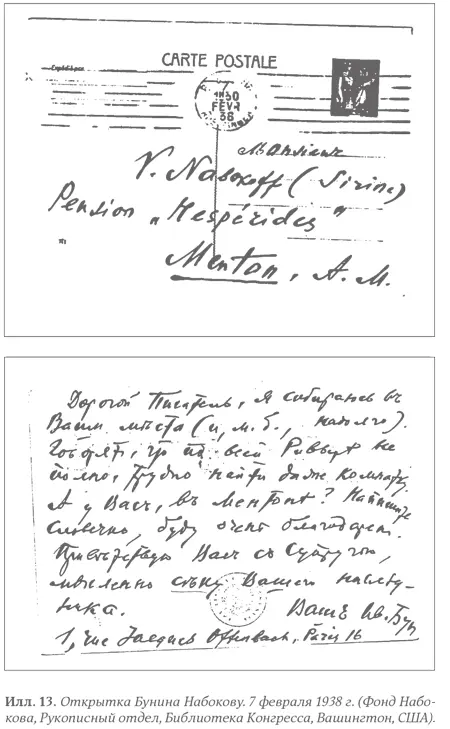 CARTE POSTALE
1830
FEVR
38
Monsieur
V. Nabokoff (Sirine)
Pension „Hespérides"
Menton, A. M.
Дорогой Писатель, я собираюсь въ
Ваши мѣста (и, м. б., надолго).
Говорятъ, что на всей Ривьерѣ не
полно, трудно найти даже комнату.
А у Васъ, въ Ментонѣ? Напишите
словечко, буду очень благодарен.
Привѣтствую Васъ съ Супругой,
мысленно Вашего наслѣд-
ника.
Вашъ Ив. Бун
1, rue Jacques Offenbach, Paris 16
Илл. 13. Открытка Бунина Набокову. 7 февраля 1938 г. (Фонд Набо-
кова, Рукописный отдел, Библиотека Конгресса, Вашингтон, США).